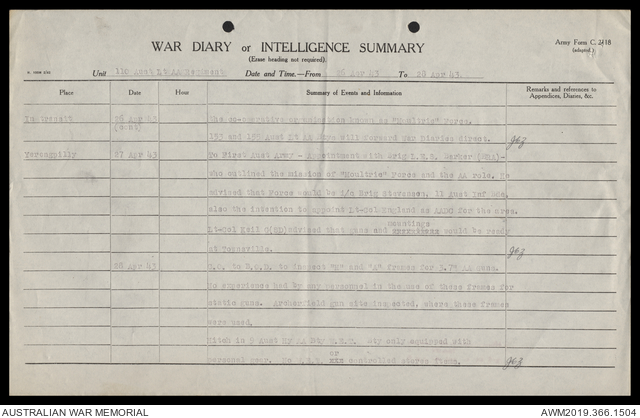 WAR DIARY or INTELLIGENCE SUMMARY
(Erase heading not required).
Army Form C. 2118
(adapted.)
Unit Aust Lt AA Date and Time.—From 26 Apr 43 To 28 Apr 43.
Place Date Hour Summary of Events and Information Remarks and references to Appendices, Diaries, &c.
In transit 26 Apr 43 The co-operative organisation known as "Moultrie" Force.
(cont) 153 and 156 Aust Lt AA Btys will forward War Diaries direct.
Yerongpilly 27 Apr 43 To First Aust Army - Appointment with Brig.
who outlined the mission of "Moultrie" Force and the AA role. He
advised that Force would be i/c Brig Stevenson, 11 Aust Inf Bde,
also the intention to appoint Lt-Col England as AADC for the area.
mountings
Lt-Col advised that guns and would be ready
at Townsville.
28 Apr 43 C.O. to B.O.D. to inspect "M" and "A" frames for 3.7" AA guns.
No experience had by any personnel in the use of these frames for
static guns. Archerfield gun site inspected, where these frames
were used.
Hitch in 5 Aust Hy AA Bty only equipped with
or
personal gear. No controlled stores items.
AUSTRALIAN WAR MEMORIAL
AWM2019.366.1504